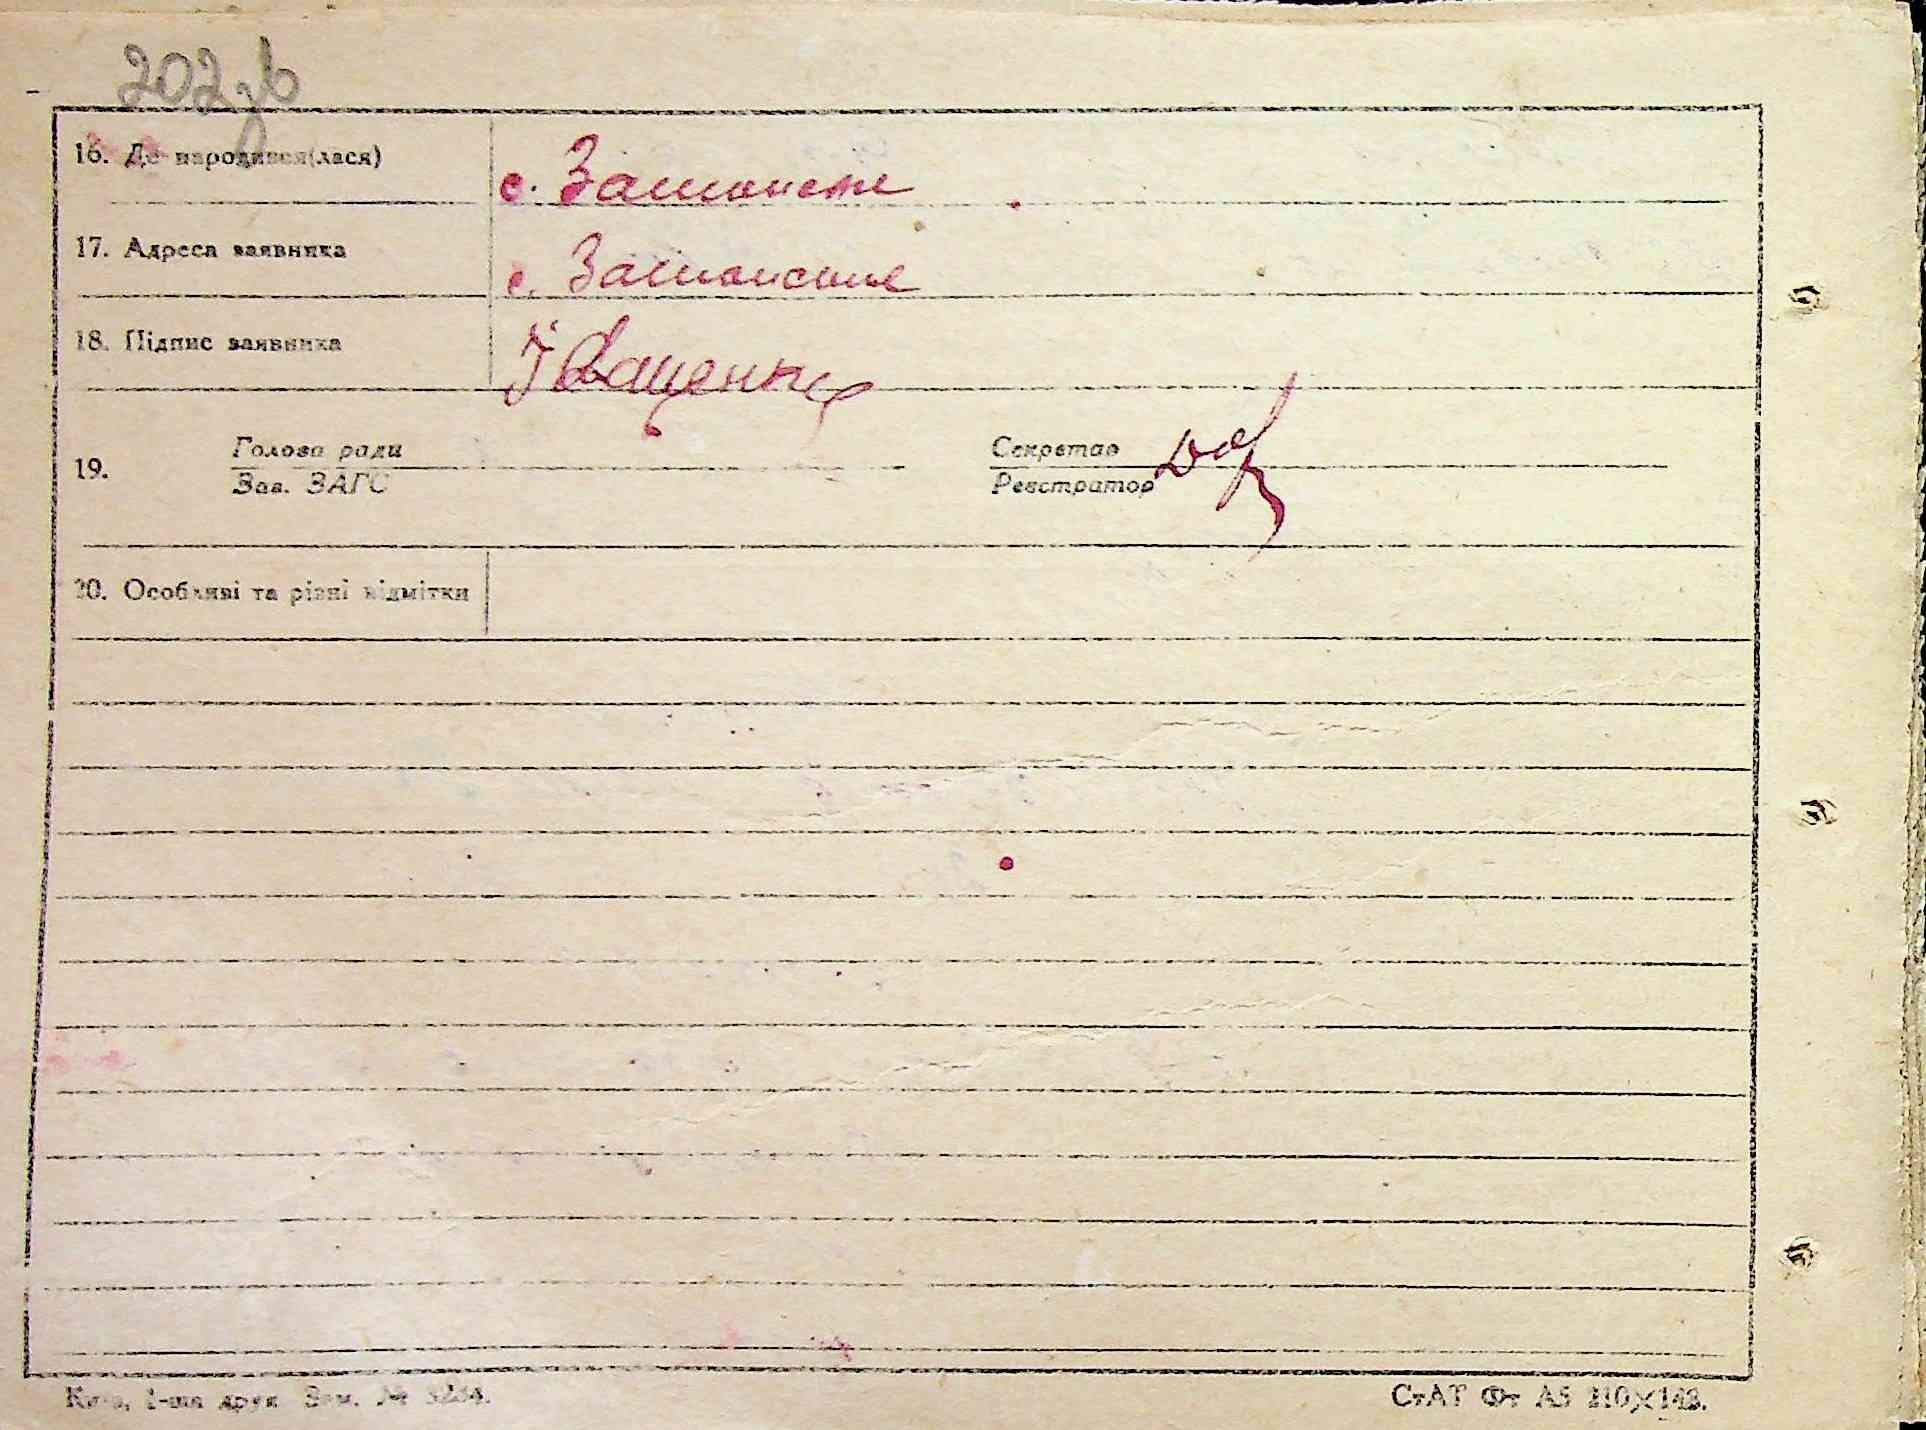 202 зв
16. Де народився(лася)
с. Зашонстє
17. Адреса заявника
с.
18. Підпис заявника
Іващенко
19.
Голова ради
Зав. ЗАГС
Секретар
Реєстратор
20. Особливі та різні відмітки
Київ, 1-ша друк Зам. №
СтАТ Фт А5 210×148.